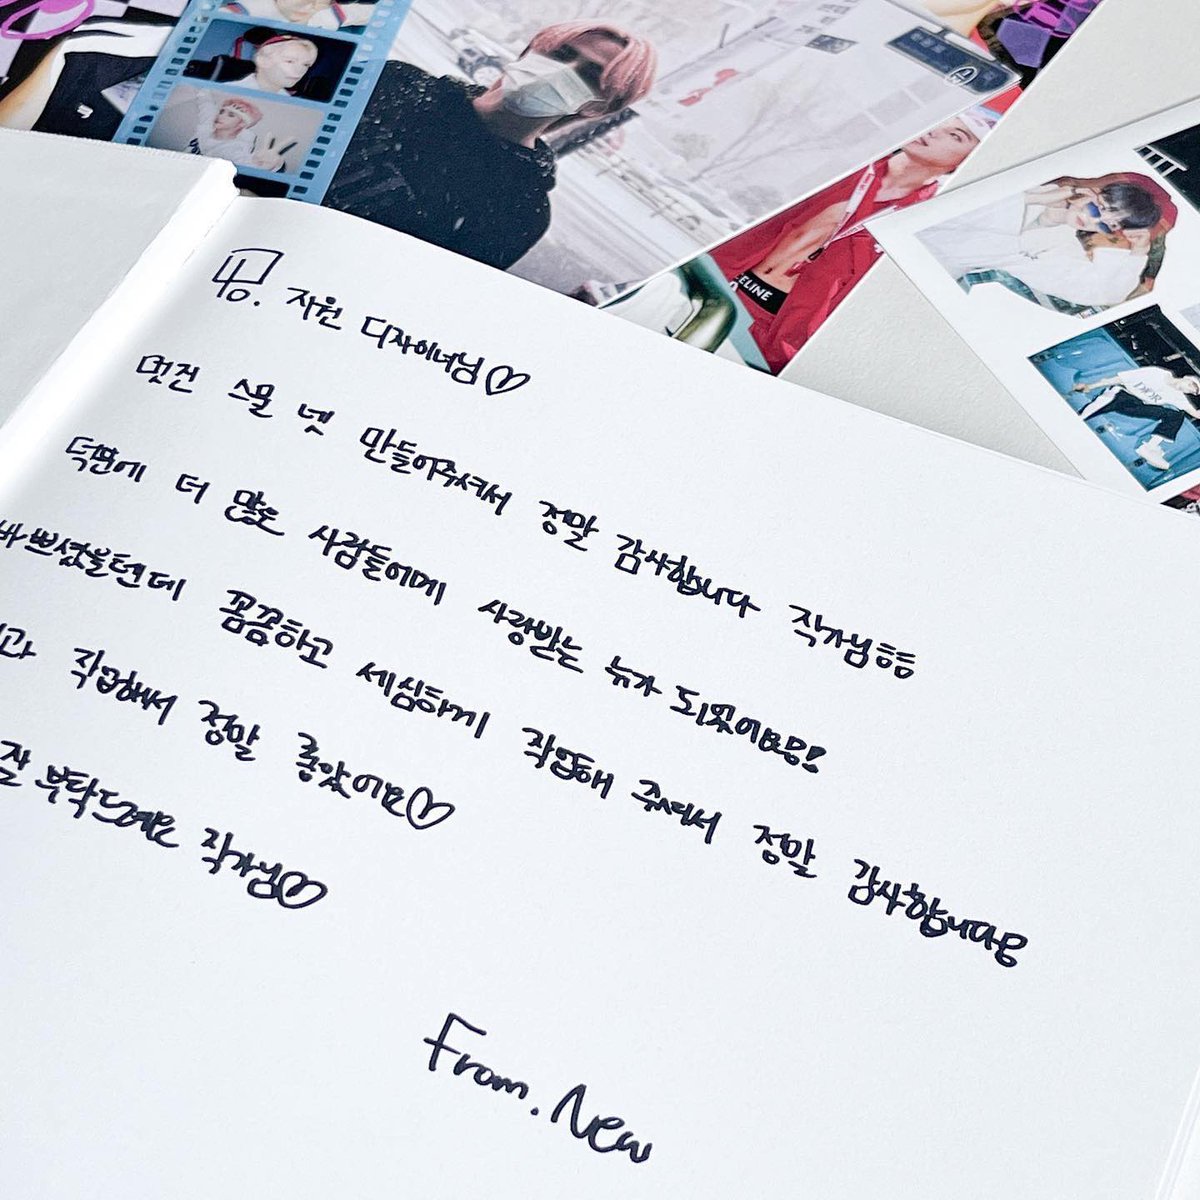 지원 디자이너님♡
멋진 스물 넷 만들어주셔서 정말 감사합니다 작가님ㅎㅎ
덕분에 더 많은 사람들에게 사랑받는 뉴가 되었어요!
바쁘셨을텐데 꼼꼼하고 세심하게 작업해 주셔서 정말 감사합니다
작업해서 정말 좋았어요♡
잘 부탁드려요 작가님♡
From. New
ELINE
DIOR